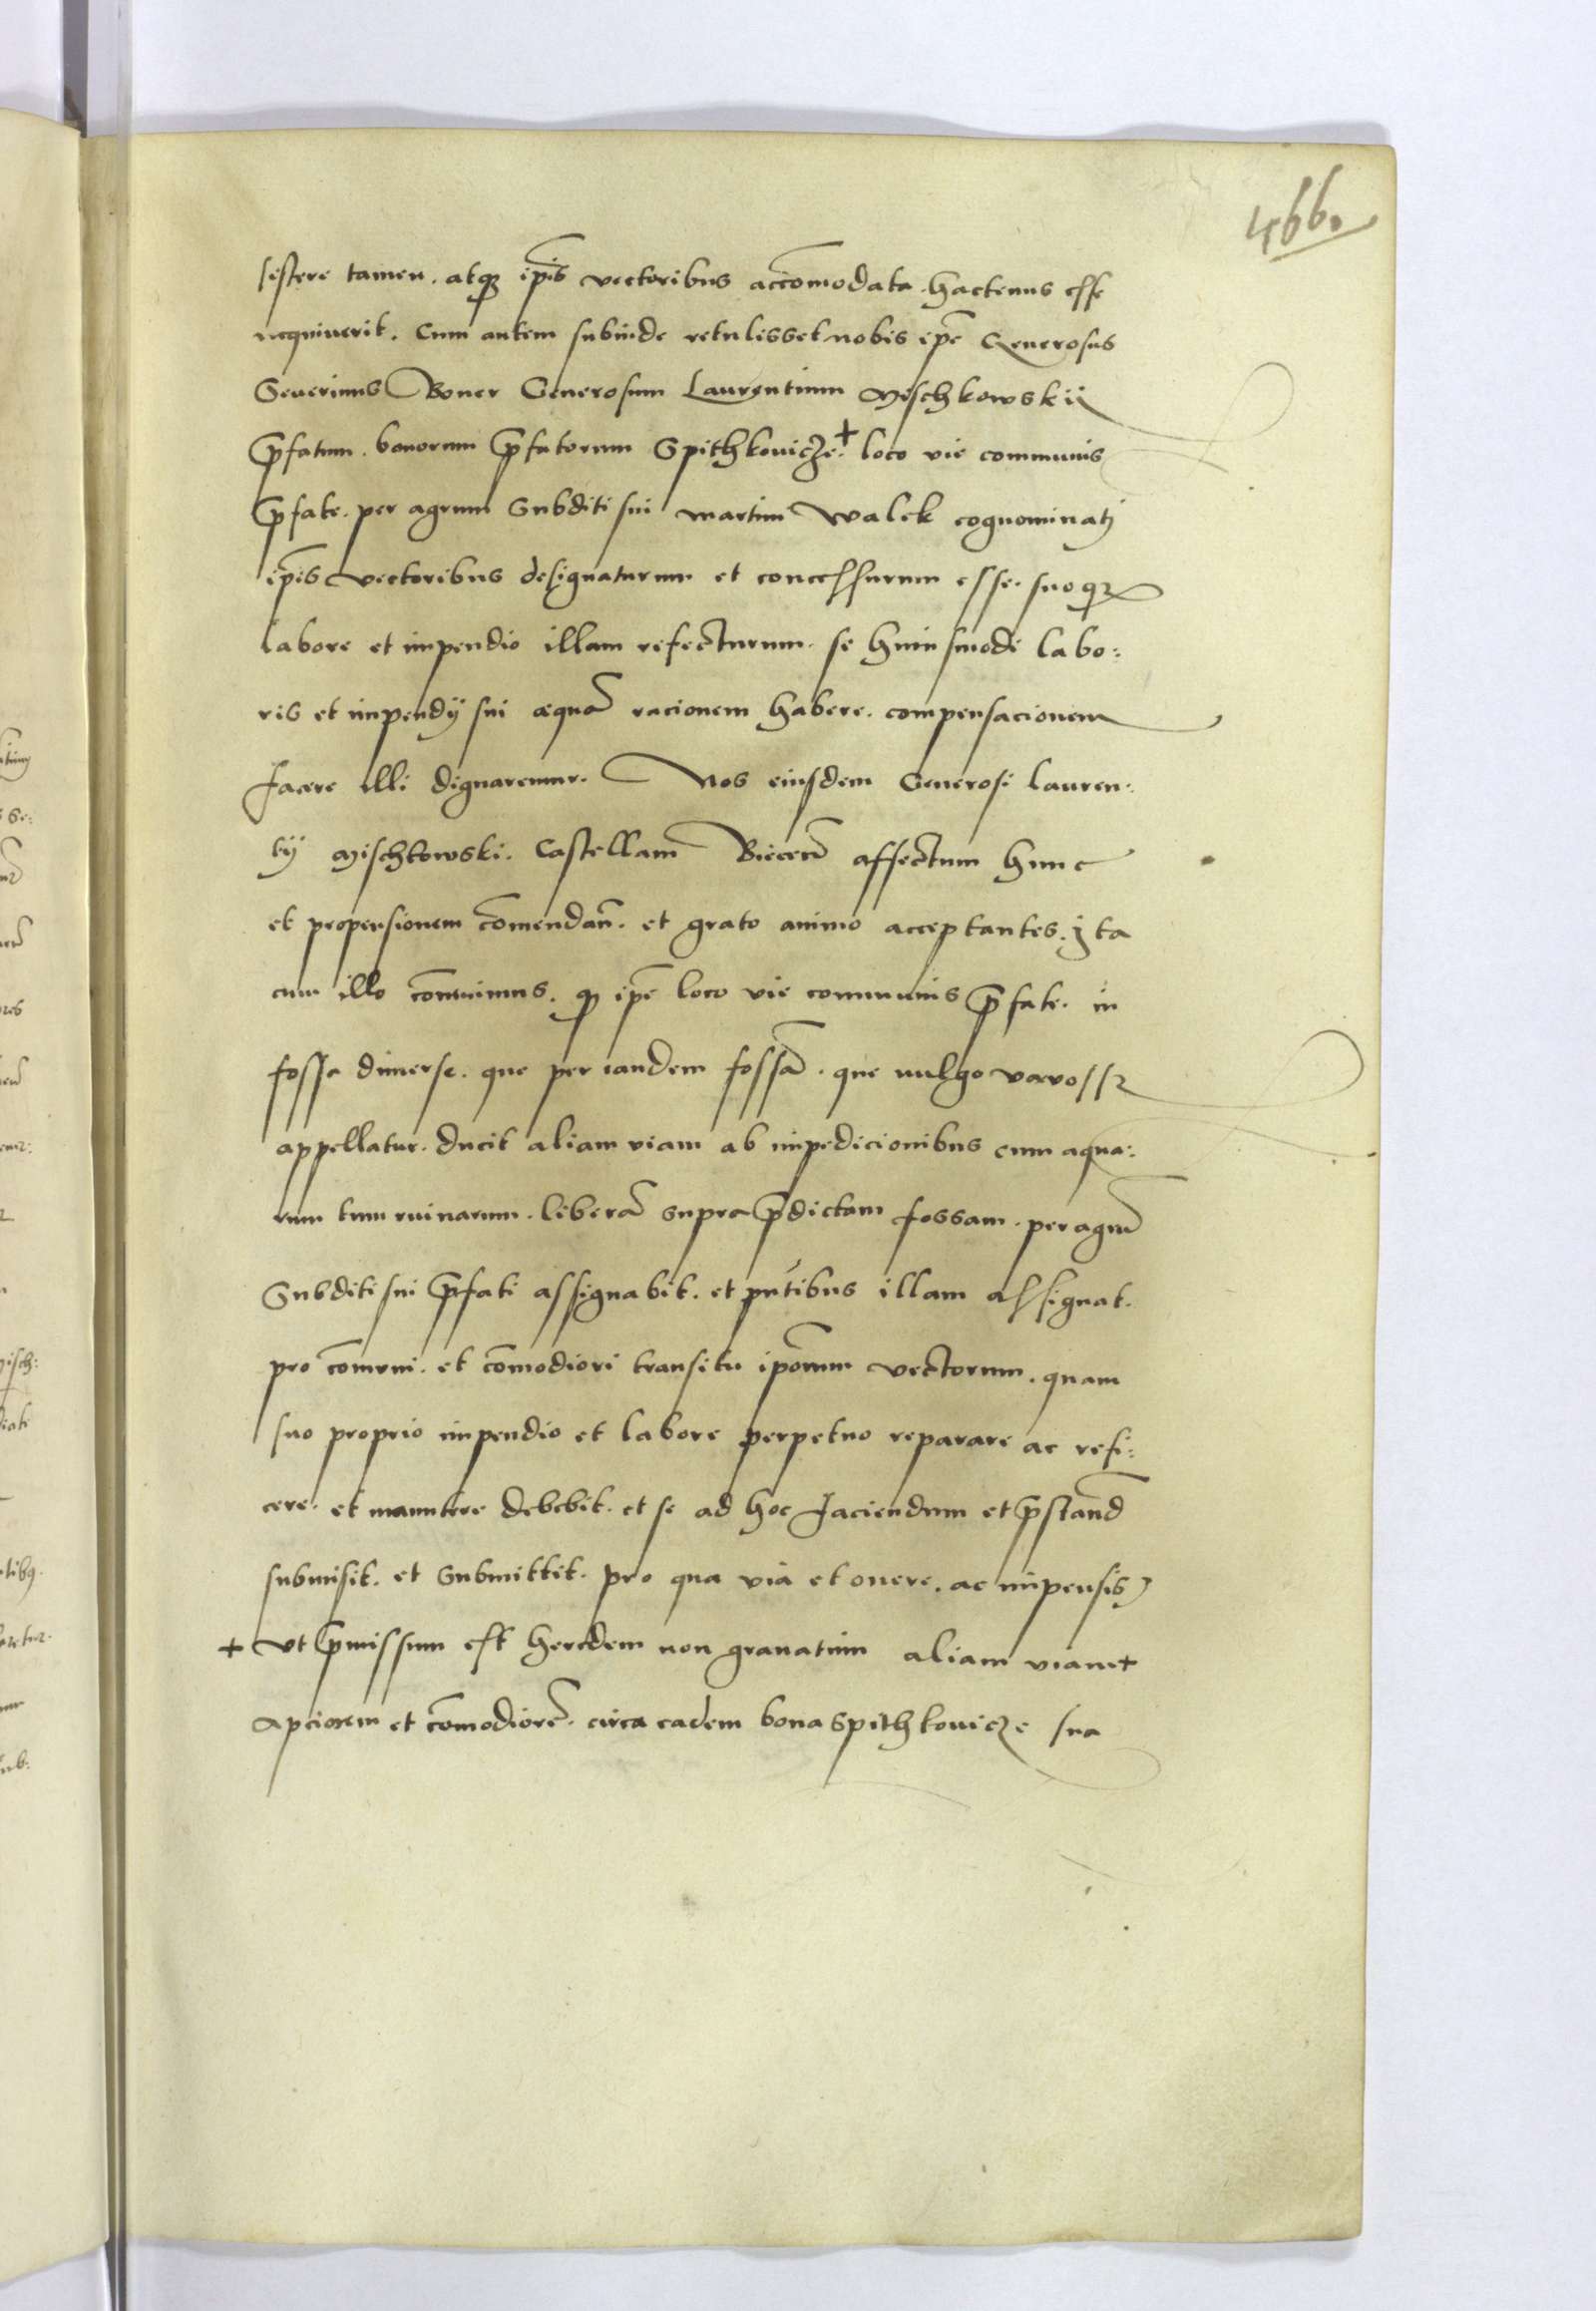 466.
sistere tamen. atq3 ip̃is vectoribus accõmodata. hactenus esse
nequiuerit. Cum autem subinde retulisset nobis ip̃e Generosus
Seuerinus Boner Generosum Laurentium Mischkowskij
p̃fatum. bonorum p̃fatorum Spithkouicze + loco vie communis
p̃fate. per agrum Subditi sui martini Walek cognominatj
ip̃is vectoribus designaturum et concessurum esse. suoq3
labore et impendio illam refecturum. se huiusmodi labo:
ris et impendij sui æquã racionem habere. compensacionem
facere illi dignaremur. Nos eiusdem Generosi Lauren:
tij Mischkowski. Castellani Biecen̄ affectum hunc
et propensionem cõmendan̄. et grato animo acceptantes. jta
cum illo conuenimus. q ip̃e loco vie communis p̃fate. in
fossa dimerse. que per eandem fossã. que vulgo
appellatur. ducit aliam viam ab impedicionibus cum aqua:
rum tum ruinarum. liberã supra p̃dictam fossam. per agrũ
Subditi sui p̃fati assignabit. et pñtibus illam assignat.
pro cõmuni. et cõmodiori transitu ip̃orum vectorum. quam
suo proprio impendio et labore perpetuo reparare ac refi:
cere. et munire debebit. et se ad hoc faciendum et p̃stand̃
submisit. et Submittit. pro qua via et onere. ac impensis
+ vt p̃missum est heredem non grauatim aliam viam +
apciorem et cõmodiorẽ. circa eadem bona Spithkouicze sua